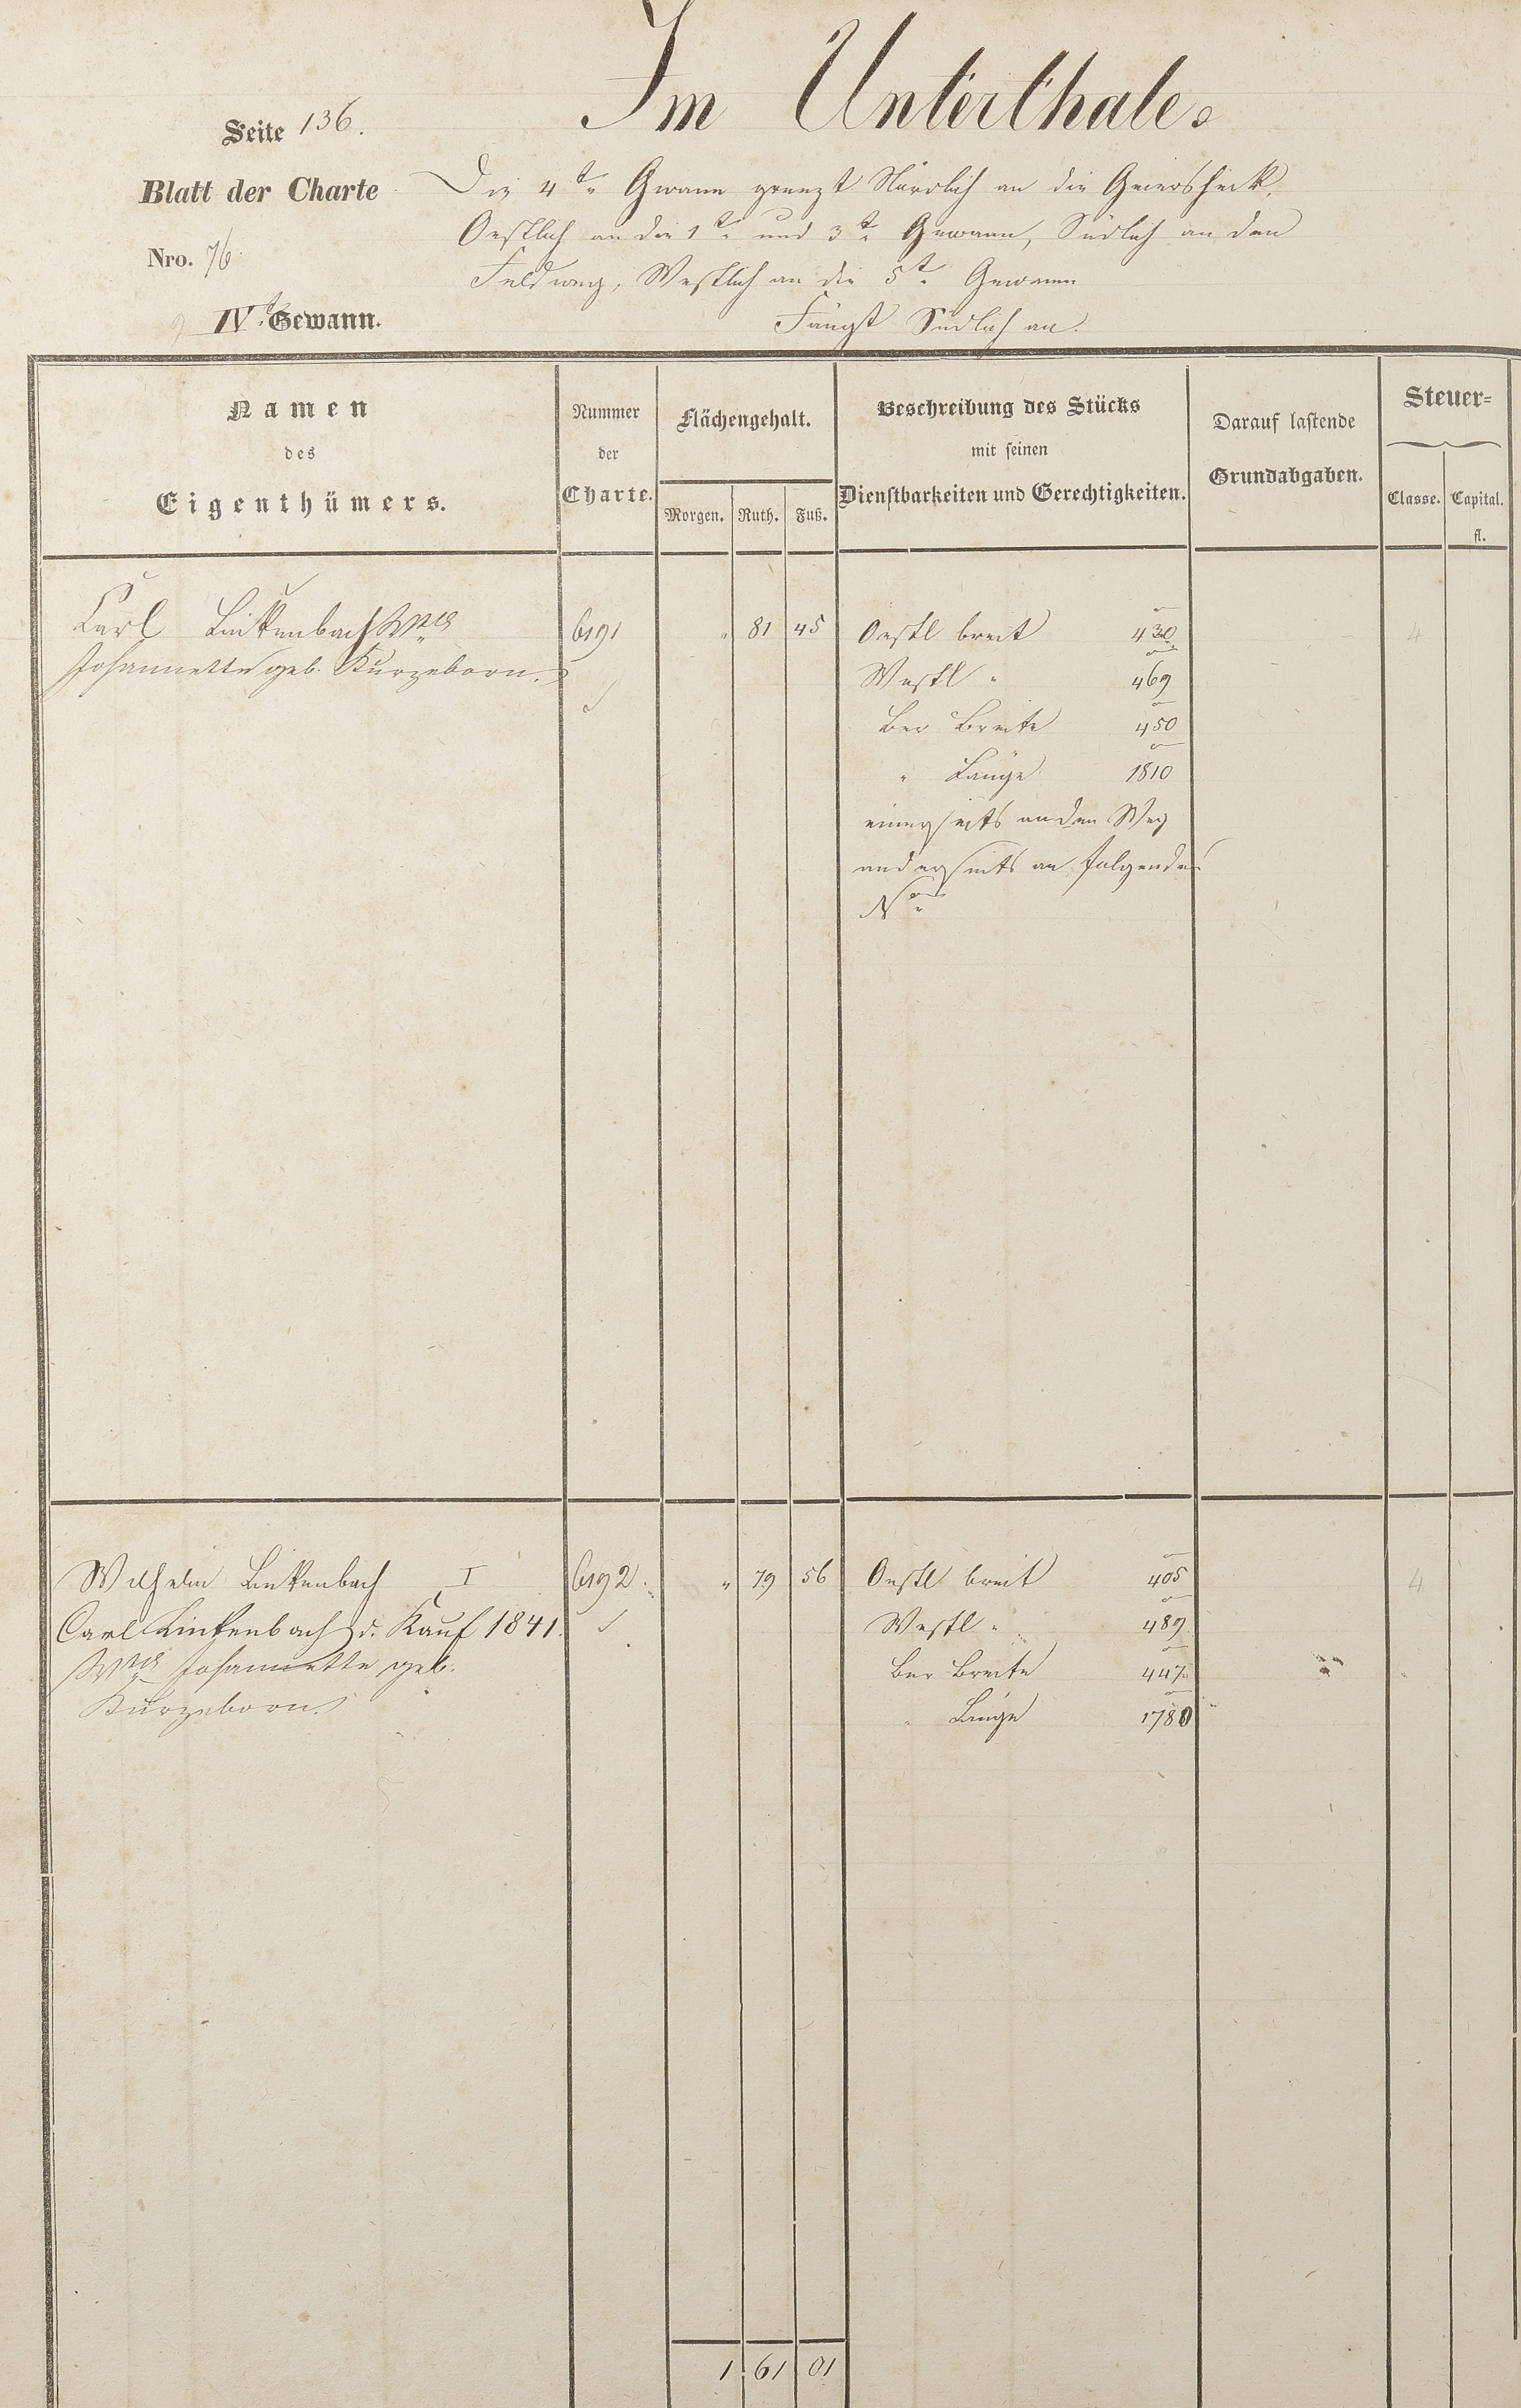 Im Unterthale.
Seite 136.
Blatt der Charte
Nro. 76
IVte Gewann.
Die 4te Gwann grenzt Nördlich an die Geiersheck,
Oestlich an die 1te und 3te Gewann, Südlich an den
Feldweg, Westlich an die 5te Gewann
Fängt Südlich an.
Namen
des
Eigenthümers.
Nummer
der
Charte.
Flächengehalt.
Morgen. Ruth. Fuß.
Beschreibung des Stücks
mit seinen
Dienstbarkeiten und Gerechtigkeiten.
Darauf lastende
Grundabgaben.
Steuer=
Classe. Capital.
fl.
Carl Linkenbach Wwe 6191 " 81 45 Oestl breit 430 4
Johannette geb. Kurzeborn.
Westl " 469
Ber Breite 450
" Länge 1810
einerseits an den Weg
anderseits an folgende
Nro
Wilhelm Linkenbach I 6192. " 79 56 Oestl breit 405 4
Carl Linkenbach d. Kauf 1841. Westl " 489
Wwe Johannette geb. Ber Breite 447
Kurzeborn. " Länge 1780
1 61 01